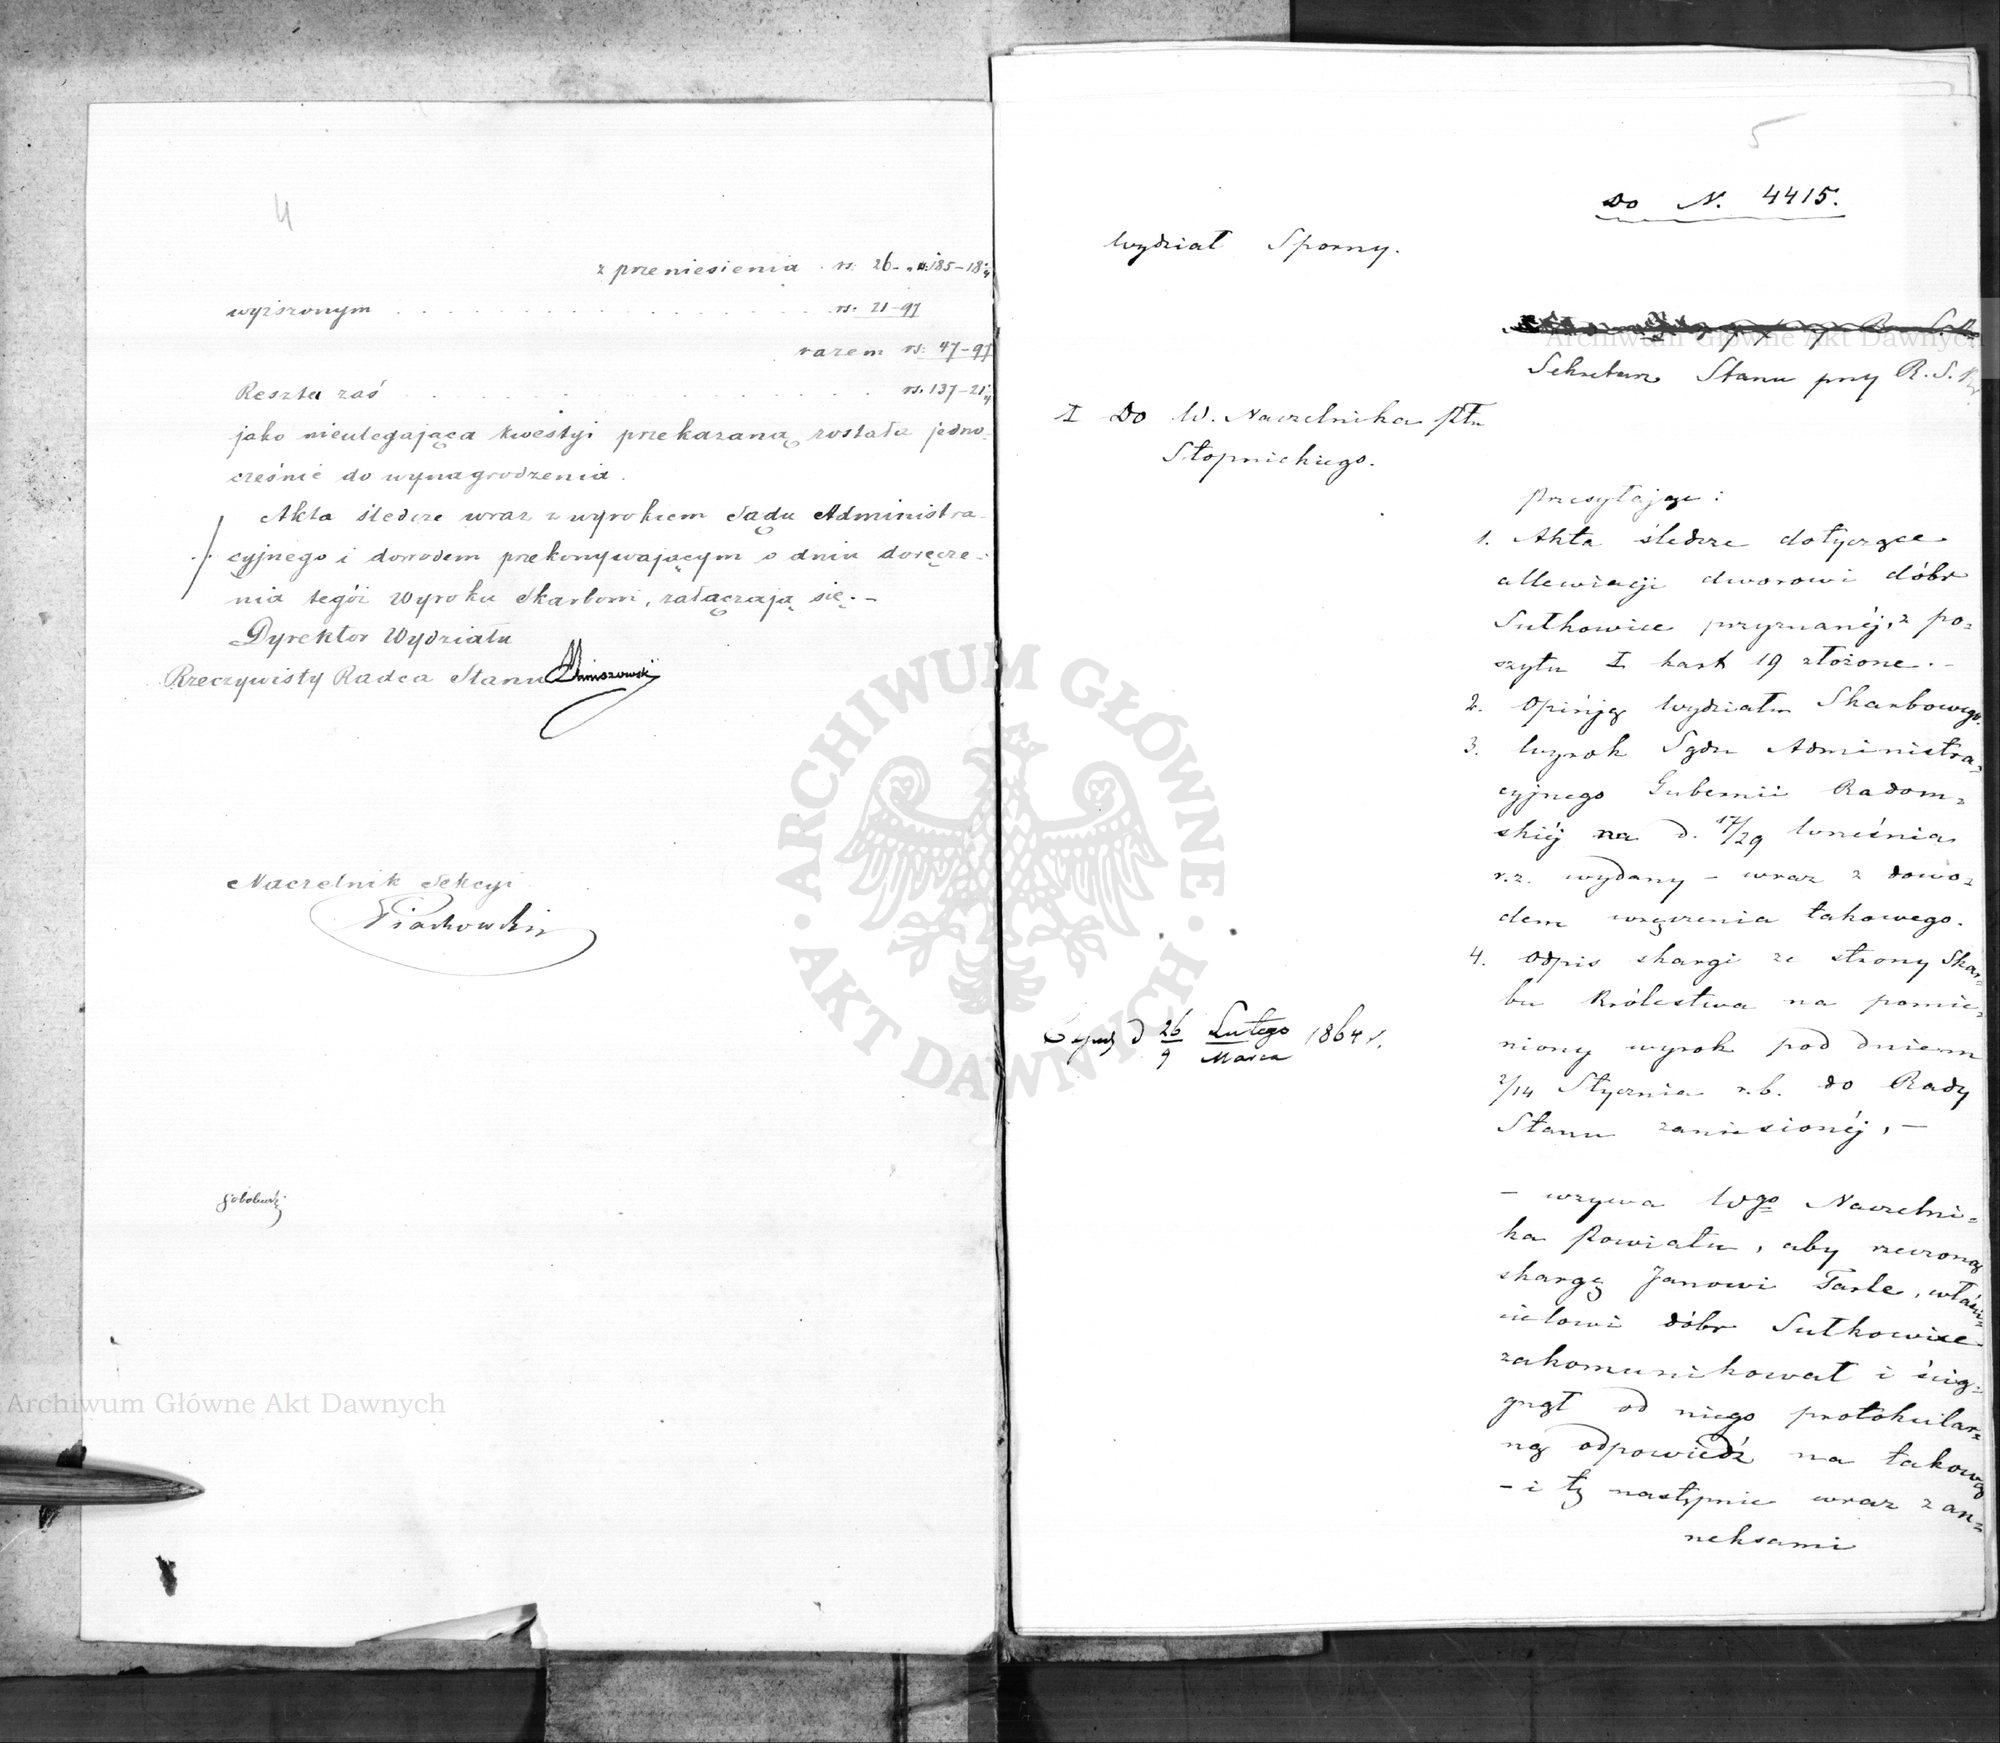 4
z przeniesienia rs. 26 - „ rs. 185-18
wyższonym . . . . rs. 21-97
razem rs. 47-97
Reszta zaś . . . . rs. 137-21
jako nieulegająca kwestyi przekazaną została jedno-
cześnie do wynagrodzenia.
Akta śledcze wraz z wyrokiem Sądu Administra-
cyjnego i dowodem przekonywającym o dniu doręcze-
nia tegóż Wyroku Skarbowi, załączają się. -
Dyrektor Wydziału
Rzeczywisty Radca Stanu
Naczelnik Sekcyi
Piachowski
5
Do N. 4415.
Wydział Sporny.
Sekretarz Stanu przy R. S. K.
I Do W. Naczelnika Ptu
Stopnickiego.
Przesyłając:
1. Akta śledcze dotyczące
allewiacji dworowi dóbr
Sułkowice przyznanéj, z po=
szytu I kart 19 złożone. -
2. Opinją Wydziału Skarbowego.
3. Wyrok Sądu Administra=
cyjnego Gubernii Radom=
skiéj na d. 17/29 Września
r.z. wydany - wraz z dowo=
dem wręczenia takowego.
4. Odpis skargi ze strony Skar=
bu Królestwa na pomie=
niony wyrok pod dniem
2/14 Stycznia r.b. do Rady
Stanu zaniesionéj, -
Lutego
26
9 Marca 1864 r.
- wzywa Wgo Naczelni=
ka Powiatu, aby rzeczoną
skargę Janowi Tarle, właści=
cielowi dóbr Sułkowice
zakomunikował i ścią=
gnął od niego protokular=
ną odpowiedź na takową
- i tę następnie wraz z an=
neksami
Archiwum Główne Akt Dawnych
Archiwum Główne Akt Dawnych
ARCHIWUM GŁÓWNE · AKT DAWNYCH ·